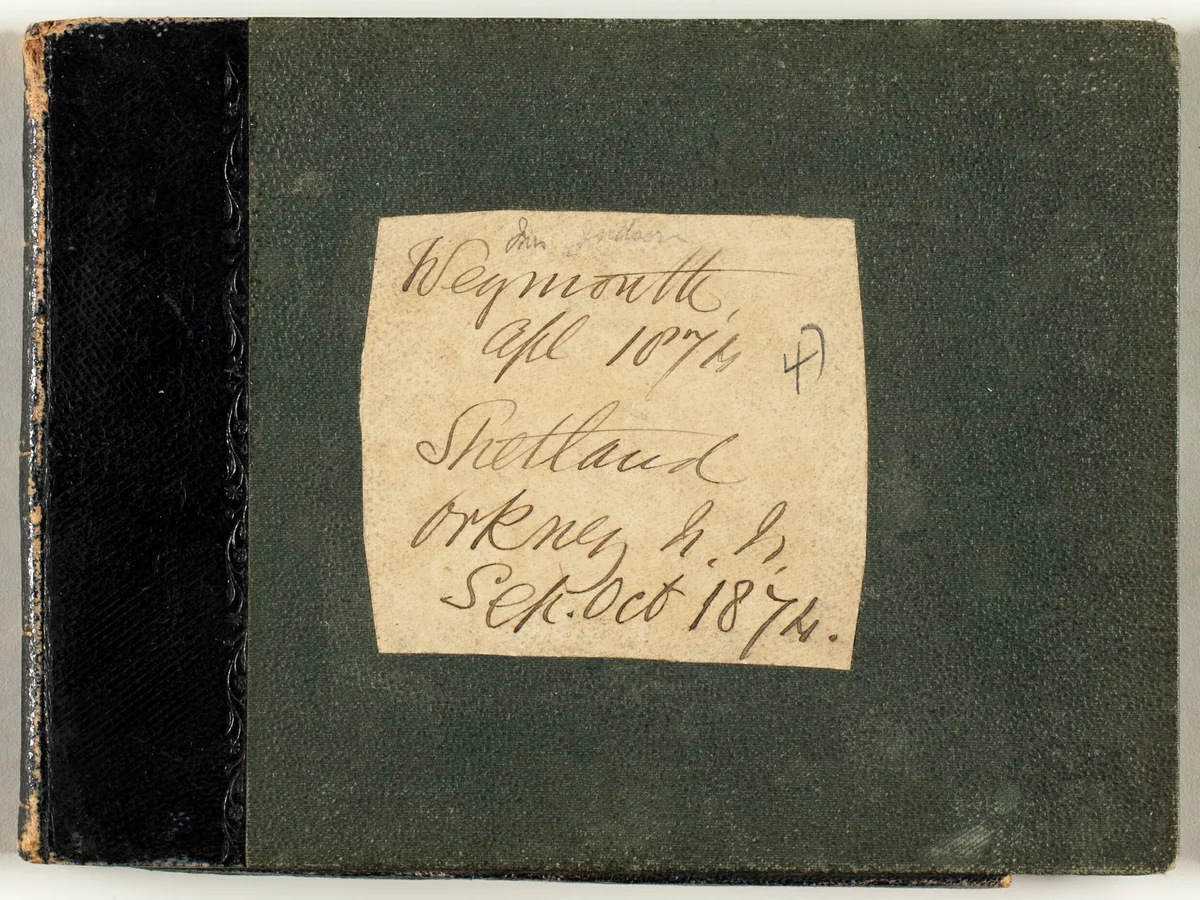 Weymouth,
Apl 1874
4)
Shetland
Orkney h. h,
Sep. Oct 1874.